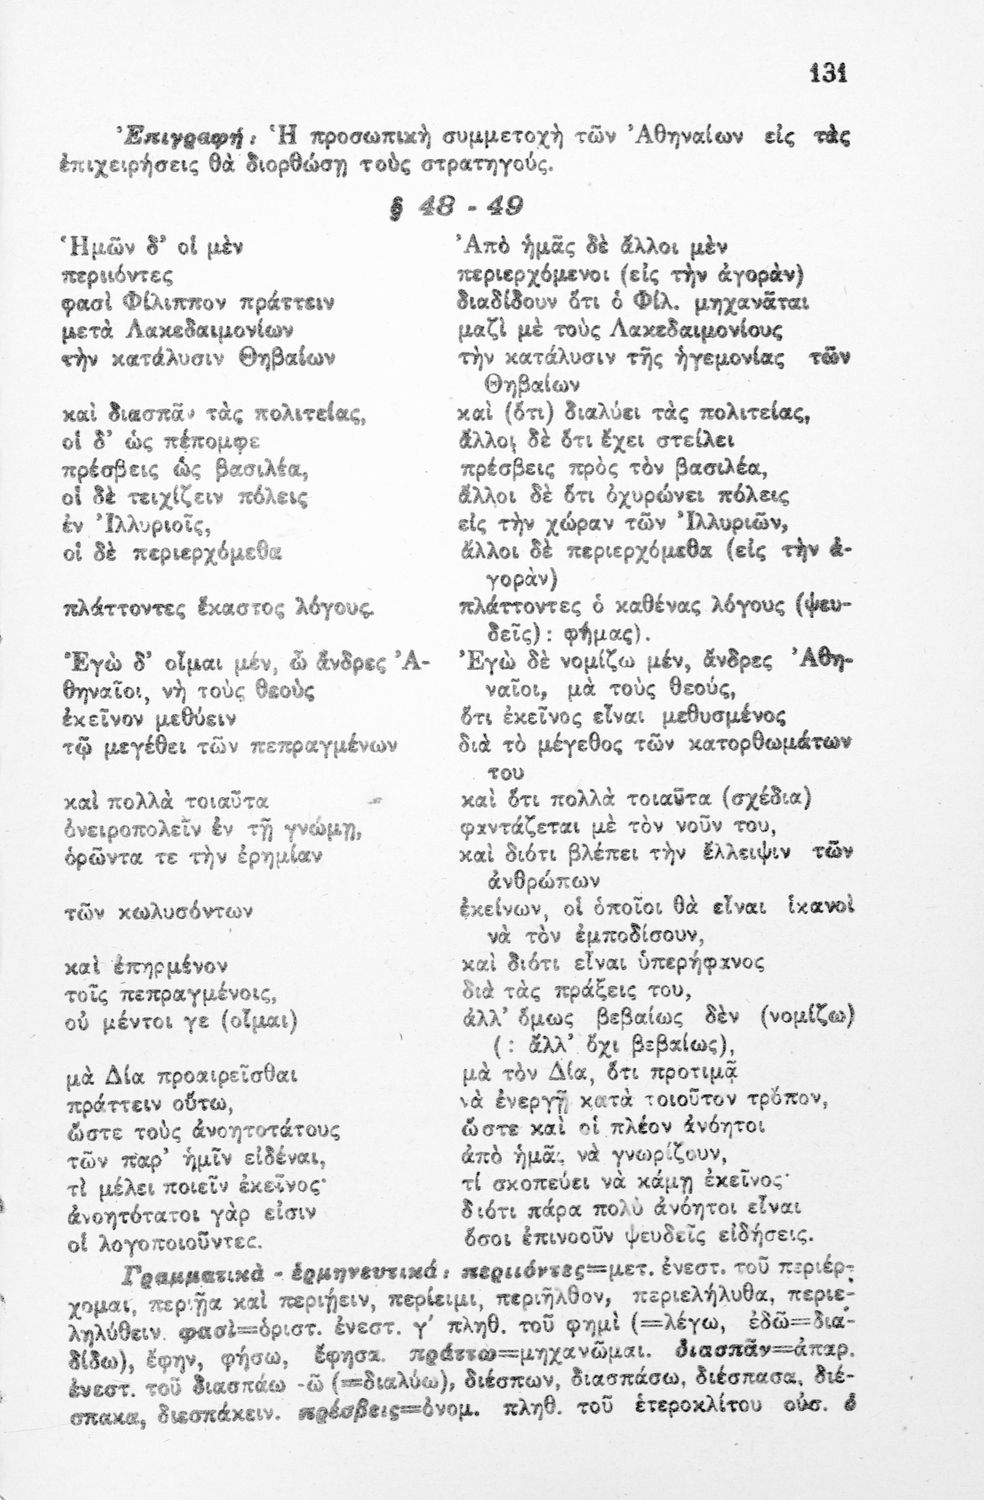 131
Ἐπιγραφή: Ἡ προσωπικὴ συμμετοχὴ τῶν Ἀθηναίων εἰς τὰς
ἐπιχειρήσεις θὰ διορθώσῃ τοὺς στρατηγούς.
§ 48 - 49
Ἡμῶν δ' οἱ μὲν
περιιόντες
φασὶ Φίλιππον πράττειν
μετὰ Λακεδαιμονίων
τὴν κατάλυσιν Θηβαίων
καὶ διασπᾶν τὰς πολιτείας,
οἱ δ' ὡς πέπομφε
πρέσβεις ὡς βασιλέα,
οἱ δὲ τειχίζειν πόλεις
ἐν Ἰλλυριοῖς,
οἱ δὲ περιερχόμεθα
πλάττοντες ἕκαστος λόγους.
Ἐγὼ δ' οἶμαι μέν, ὦ ἄνδρες Ἀ-
θηναῖοι, νὴ τοὺς θεοὺς
ἐκεῖνον μεθύειν
τῷ μεγέθει τῶν πεπραγμένων
καὶ πολλὰ τοιαῦτα
ὀνειροπολεῖν ἐν τῇ γνώμῃ,
ὁρῶντα τε τὴν ἐρημίαν
τῶν κωλυσόντων
καὶ ἐπηρμένον
τοῖς πεπραγμένοις,
οὐ μέντοι γε (οἶμαι)
μὰ Δία προαιρεῖσθαι
πράττειν οὕτω,
ὥστε τοὺς ἀνοητοτάτους
τῶν παρ' ἡμῖν εἰδέναι,
τὶ μέλει ποιεῖν ἐκεῖνος·
ἀνοητότατοι γὰρ εἰσιν
οἱ λογοποιοῦντες.
Ἀπὸ ἡμᾶς δὲ ἄλλοι μὲν
περιερχόμενοι (εἰς τὴν ἀγορὰν)
διαδίδουν ὅτι ὁ Φίλ. μηχανᾶται
μαζὶ μὲ τοὺς Λακεδαιμονίους
τὴν κατάλυσιν τῆς ἡγεμονίας τῶν
Θηβαίων
καὶ (ὅτι) διαλύει τὰς πολιτείας,
ἄλλοι δὲ ὅτι ἔχει στείλει
πρέσβεις πρὸς τὸν βασιλέα,
ἄλλοι δὲ ὅτι ὀχυρώνει πόλεις
εἰς τὴν χώραν τῶν Ἰλλυριῶν,
ἄλλοι δὲ περιερχόμεθα (εἰς τὴν ἀ-
γορὰν)
πλάττοντες ὁ καθένας λόγους (ψευ-
δεῖς): φήμας).
Ἐγὼ δὲ νομίζω μέν, ἄνδρες Ἀθη-
ναῖοι, μὰ τοὺς θεούς,
ὅτι ἐκεῖνος εἶναι μεθυσμένος
διὰ τὸ μέγεθος τῶν κατορθωμάτων
του
καὶ ὅτι πολλὰ τοιαῦτα (σχέδια)
φαντάζεται μὲ τὸν νοῦν του,
καὶ διότι βλέπει τὴν ἔλλειψιν τῶν
ἀνθρώπων
ἐκείνων, οἱ ὁποῖοι θὰ εἶναι ἱκανοὶ
νὰ τὸν ἐμποδίσουν,
καὶ διότι εἶναι ὑπερήφανος
διὰ τὰς πράξεις του,
ἀλλ' ὅμως βεβαίως δὲν (νομίζω)
(: ἄλλ' ὄχι βεβαίως),
μὰ τὸν Δία, ὅτι προτιμᾷ
νὰ ἐνεργῇ κατὰ τοιοῦτον τρόπον,
ὥστε καὶ οἱ πλέον ἀνόητοι
ἀπὸ ἡμᾶς νὰ γνωρίζουν,
τί σκοπεύει νὰ κάμῃ ἐκεῖνος·
διότι πάρα πολὺ ἀνόητοι εἶναι
ὅσοι ἐπινοοῦν ψευδεῖς εἰδήσεις.
Γραμματικὰ - ἑρμηνευτικά: περιιόντες=μετ. ἐνεστ. τοῦ περιέρ-
χομαι, περιῇα καὶ περιῄειν, περίειμι, περιῆλθον, περιελήλυθα, περιε-
ληλύθειν. φασὶ=ὁριστ. ἐνεστ. γ' πληθ. τοῦ φημὶ (=λέγω, ἐδῶ=δια-
δίδω), ἔφην, φήσω, ἔφησα. πράττω=μηχανῶμαι. διασπᾶν=ἀπαρ.
ἐνεστ. τοῦ διασπάω -ῶ (=διαλύω), διέσπων, διασπάσω, διέσπασα, διέ-
σπακα, διεσπάκειν. πρέσβεις=ὀνομ. πληθ. τοῦ ἑτεροκλίτου οὐσ. ὁ